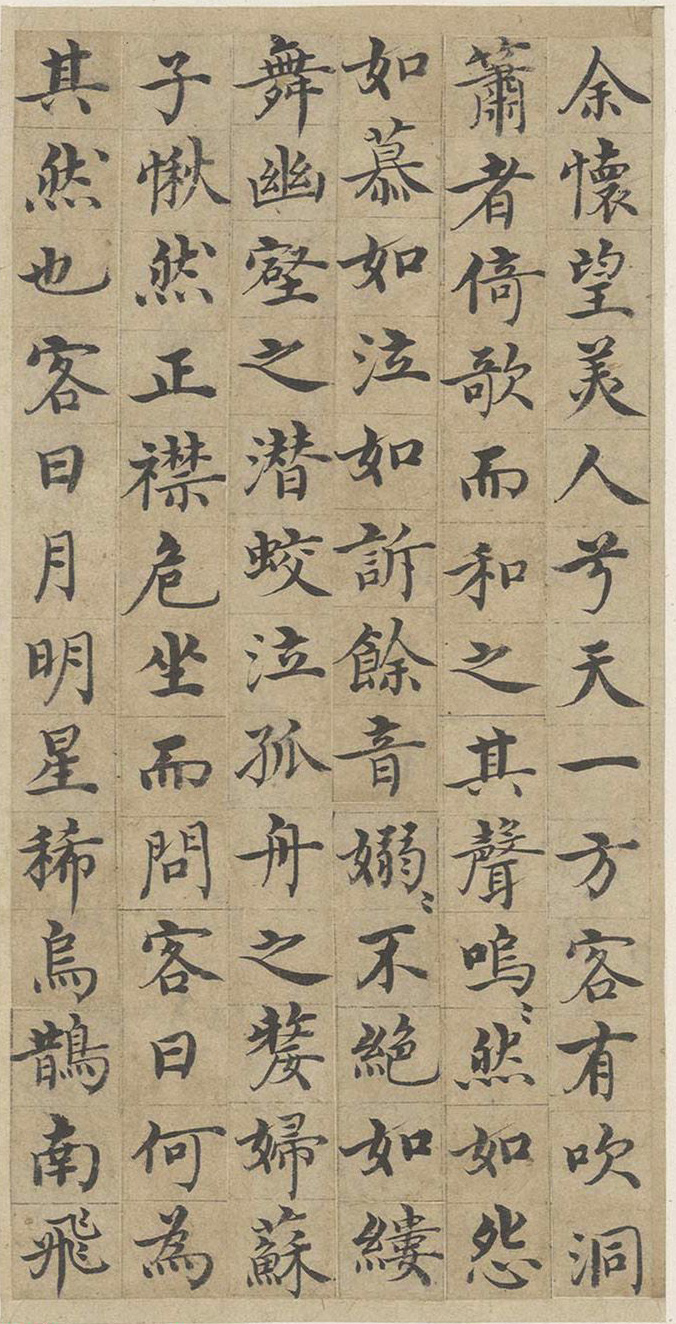 余懷望羙人兮天一方客有吹洞
簫者倚歌而和之其聲嗚〻然如怨
如慕如泣如訴餘音嫋〻不絕如縷
舞幽壑之潜蛟泣孤舟之嫠婦蘇
子愀然正襟危坐而問客曰何為
其然也客曰月明星稀烏鵲南飛